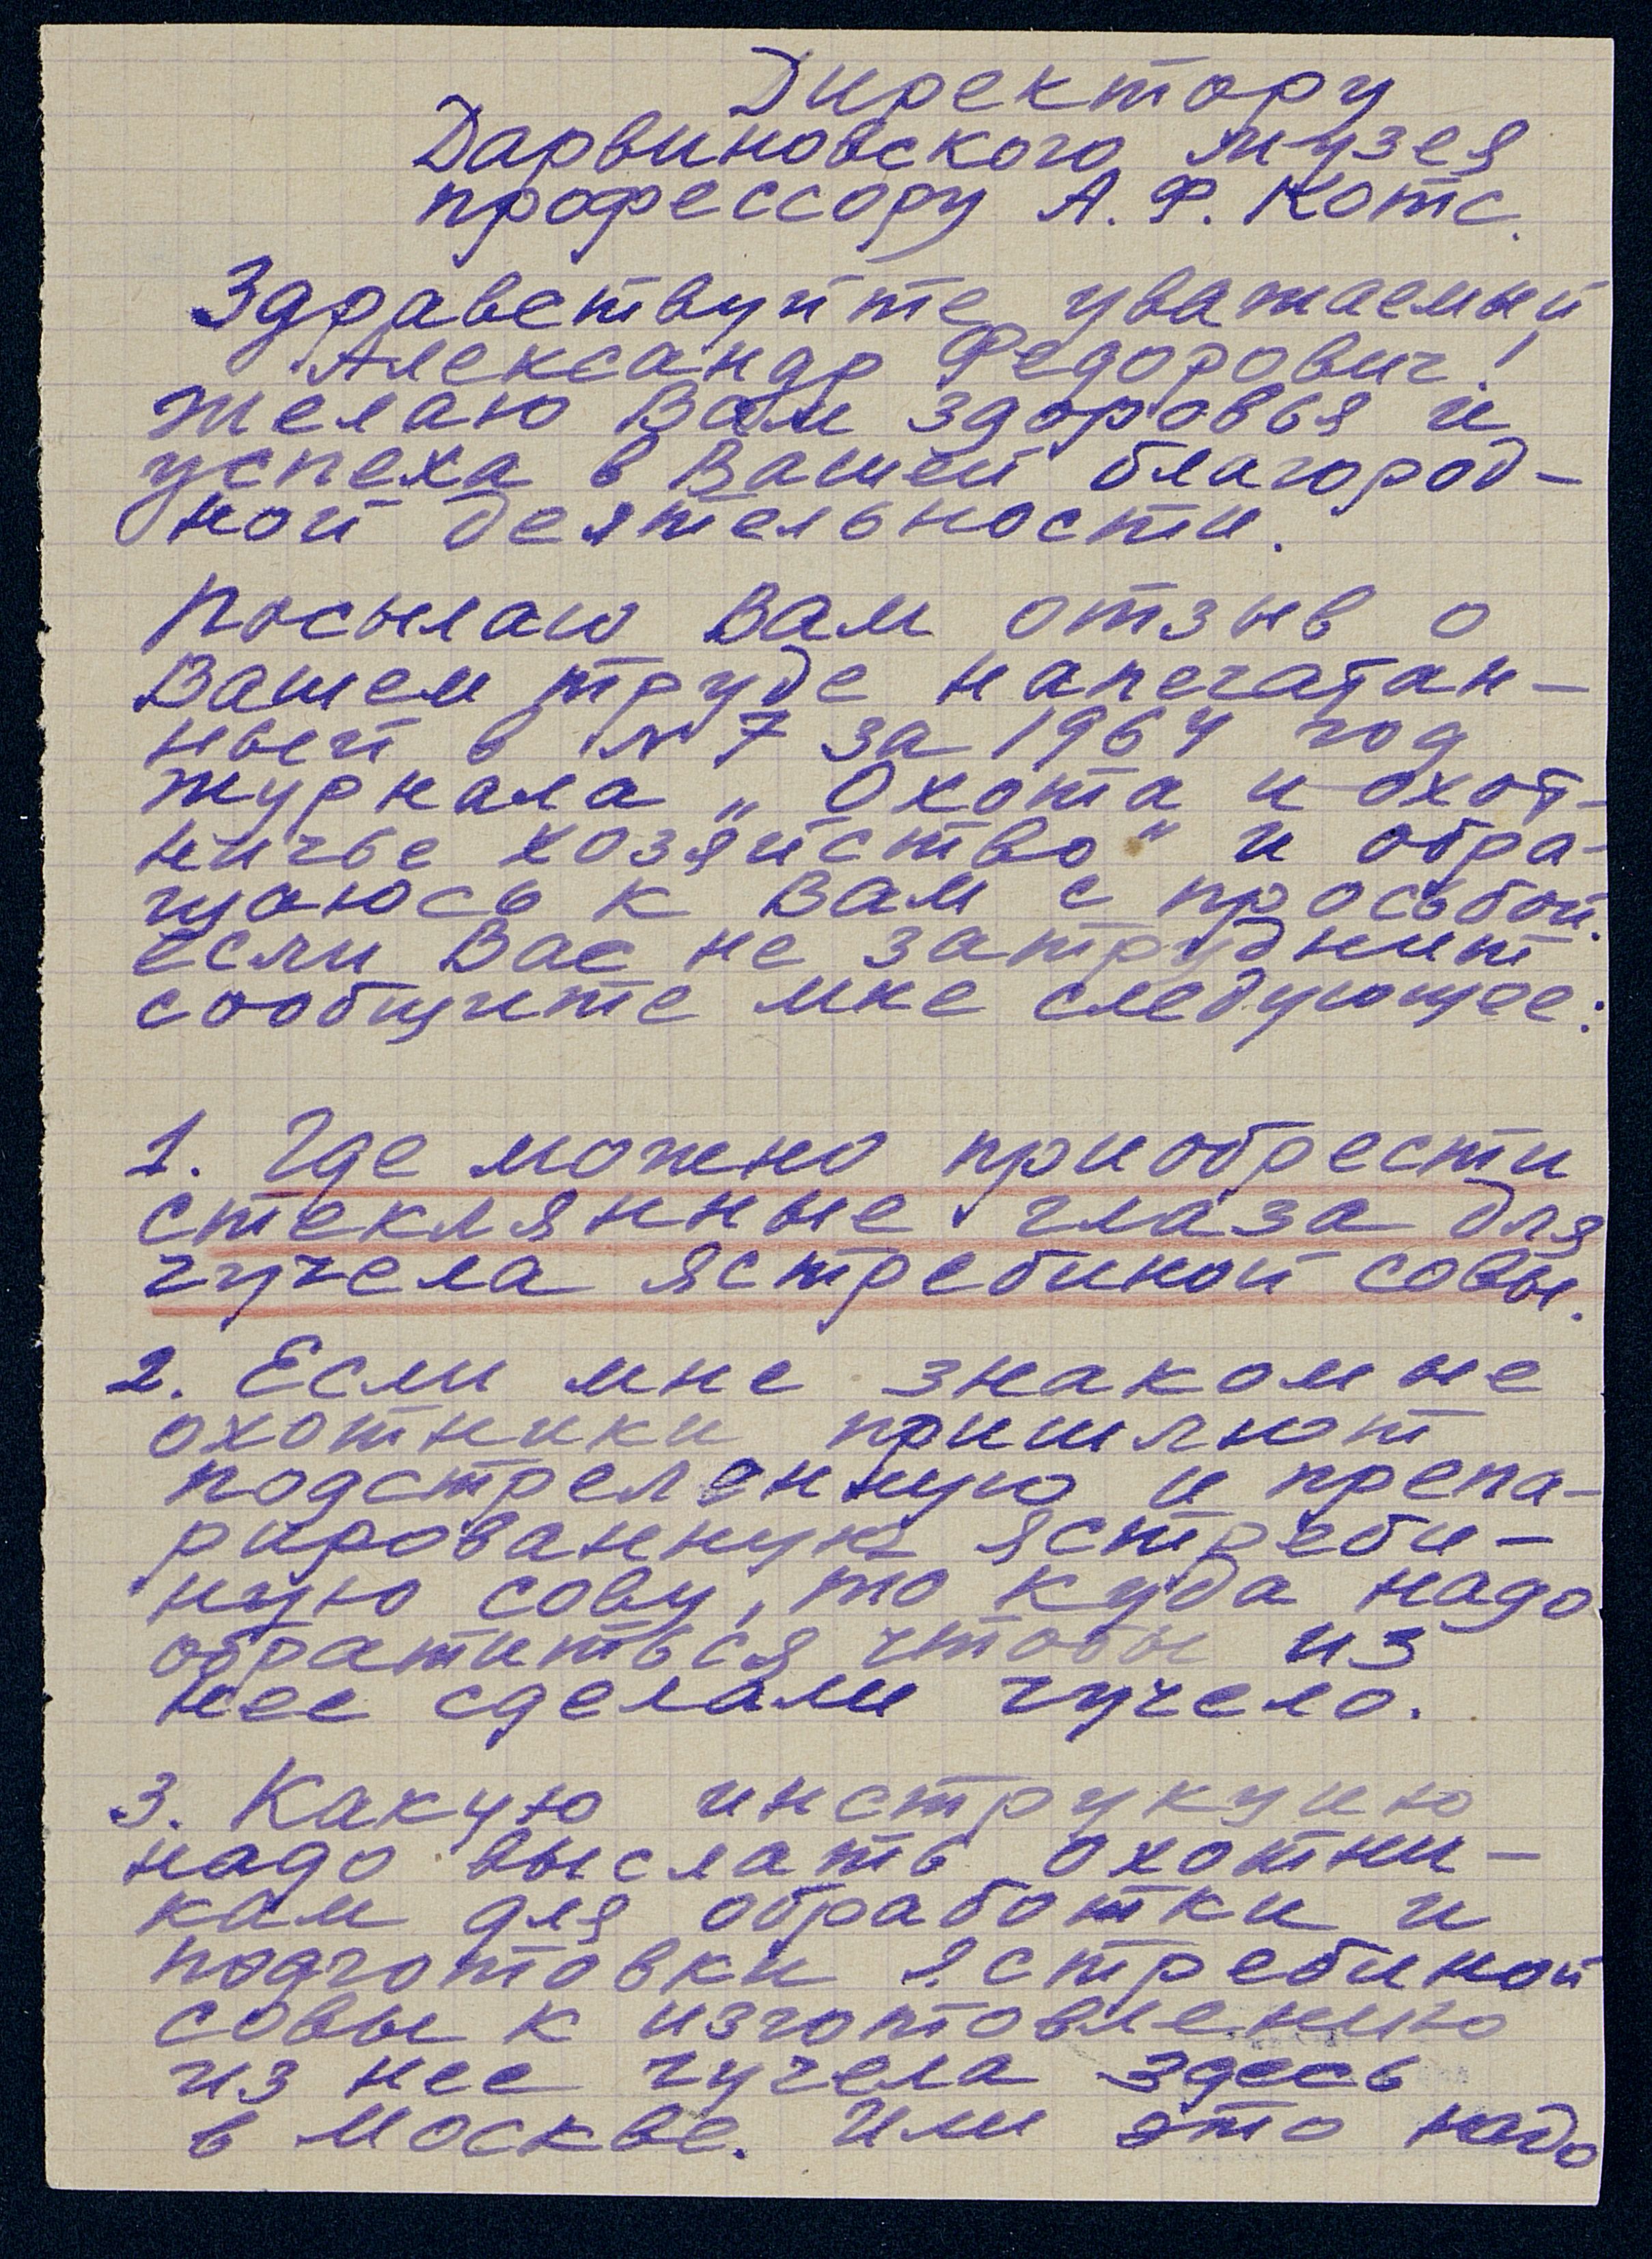 Директору
Дарвиновского музея
профессору А. Ф. Котс.
Здравствуйте уважаемый
Александр Федорович!
Желаю Вам здоровья и
успеха в Вашей благород-
ной деятельности.
Посылаю Вам отзыв о
Вашем труде напечатан-
ный в № 7 за 1964 год
журнала „Охота и охот-
ничье хозяйство" и обра-
щаюсь к Вам с просьбой.
если Вас не затруднит
сообщите мне следующее:
1. Где можно приобрести
стеклянные глаза для
чучела ястребиной совы.
2. Если мне знакомые
охотники пришлют
подстреленную и препа-
рированную ястреби-
ную сову, то куда надо
обратиться чтобы из
нее сделали чучело.
3. Какую инструкцию
надо выслать охотни-
кам для обработки и
подготовки ястребиной
совы к изготовлению
из нее чучела здесь
в Москве. Или это надо